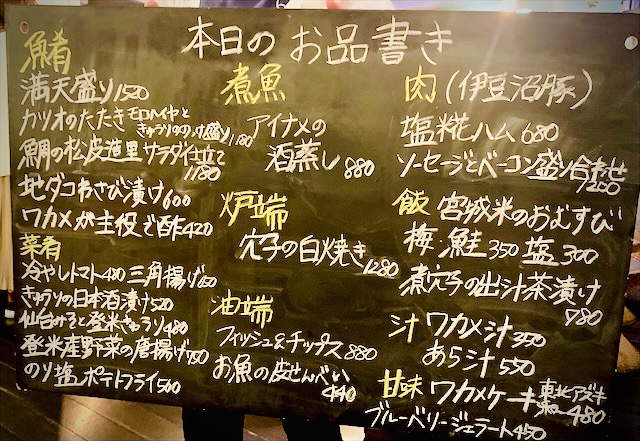 本日のお品書き
魚肴
満天盛り1520
カツオのたたき モロヘイヤと
きゅうりの
1180
鯛の松皮造里サラダ仕立て
1180
地ダコわさび漬け600
ワカメが主役で酢420
菜肴
冷やしトマト480 三角揚げ
きゅうりの日本酒漬け520
仙台みそと登米きゅうり480
登米産野菜の唐揚げ
のり塩ポテトフライ560
煮魚
アイナメの
酒蒸し880
炉端
穴子の白焼き
1280
油端
フィッシュ&チップス880
お魚の皮せんべい
440
肉(伊豆沼豚)
塩糀ハム680
ソーセージとベーコン盛り合わせ
1200
飯 宮城米のおむすび
梅・鮭350 塩300
煮穴子の出汁茶漬け
780
汁 ワカメ汁350
あら汁550
甘味 ワカメケーキ 東北アズキ
480
ブルーベリージェラート450